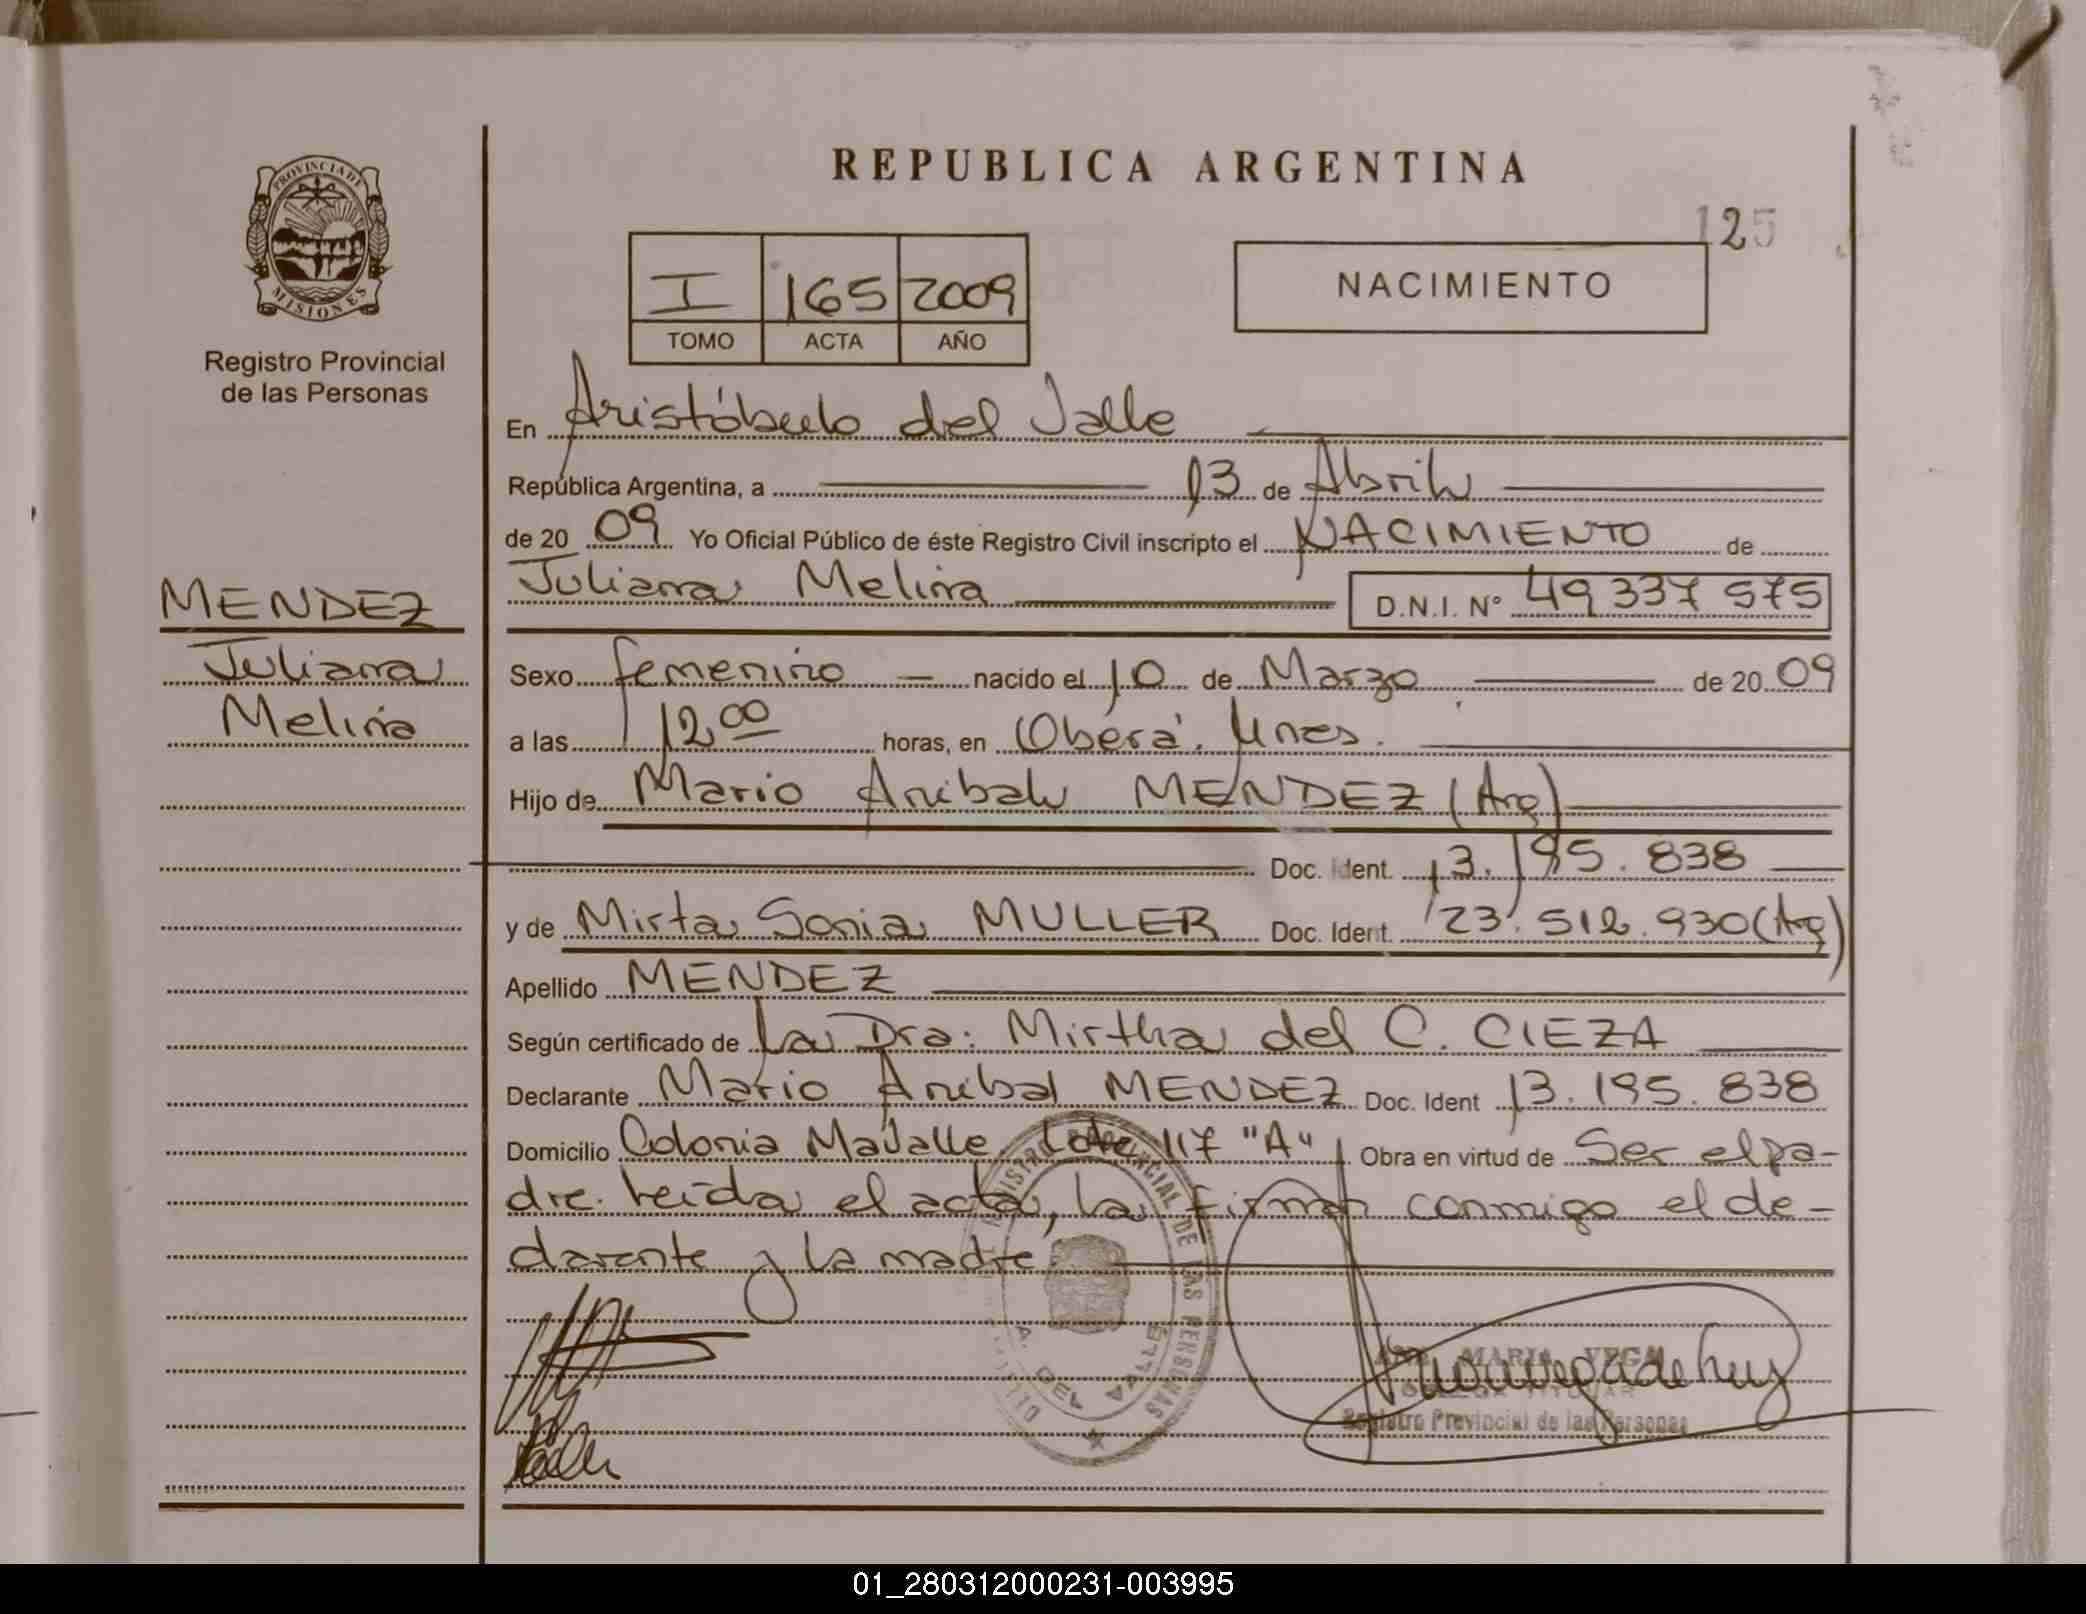 PROVINCIA DE
MISIONES
Registro Provincial
de las Personas
REPUBLICA ARGENTINA
125
I 165 2009
TOMO ACTA AÑO
NACIMIENTO
En Aristóbulo del Valle
República Argentina, a 13 de Abril
de 20 09 Yo Oficial Público de éste Registro Civil inscripto el NACIMIENTO de
Juliana Melina D.N.I. N° 49 337 575
MENDEZ
Juliana
Melina
Sexo femenino nacido el 10 de Marzo de 20 09
a las 12 00 horas, en Oberá. Mnes.
Hijo de Mario Anibal MENDEZ (Arg)
Doc. Ident. 13.195.838
y de Mirta Sonia MULLER Doc. Ident. 23.512.930 (Arg)
Apellido MENDEZ
Según certificado de La Dra: Mirtha del C. CIEZA
Declarante Mario Anibal MENDEZ Doc. Ident 13.195.838
Domicilio Colonia MaValle Lote 117 "A" Obra en virtud de Ser el pa-
dre. Leida el acta, la firman conmigo el de-
clarante y la madre
REGISTRO PROVINCIAL DE LAS PERSONAS
A. DEL VALLE
ANA MARIA VEGA
Registro Provincial de las Personas
01_280312000231-003995